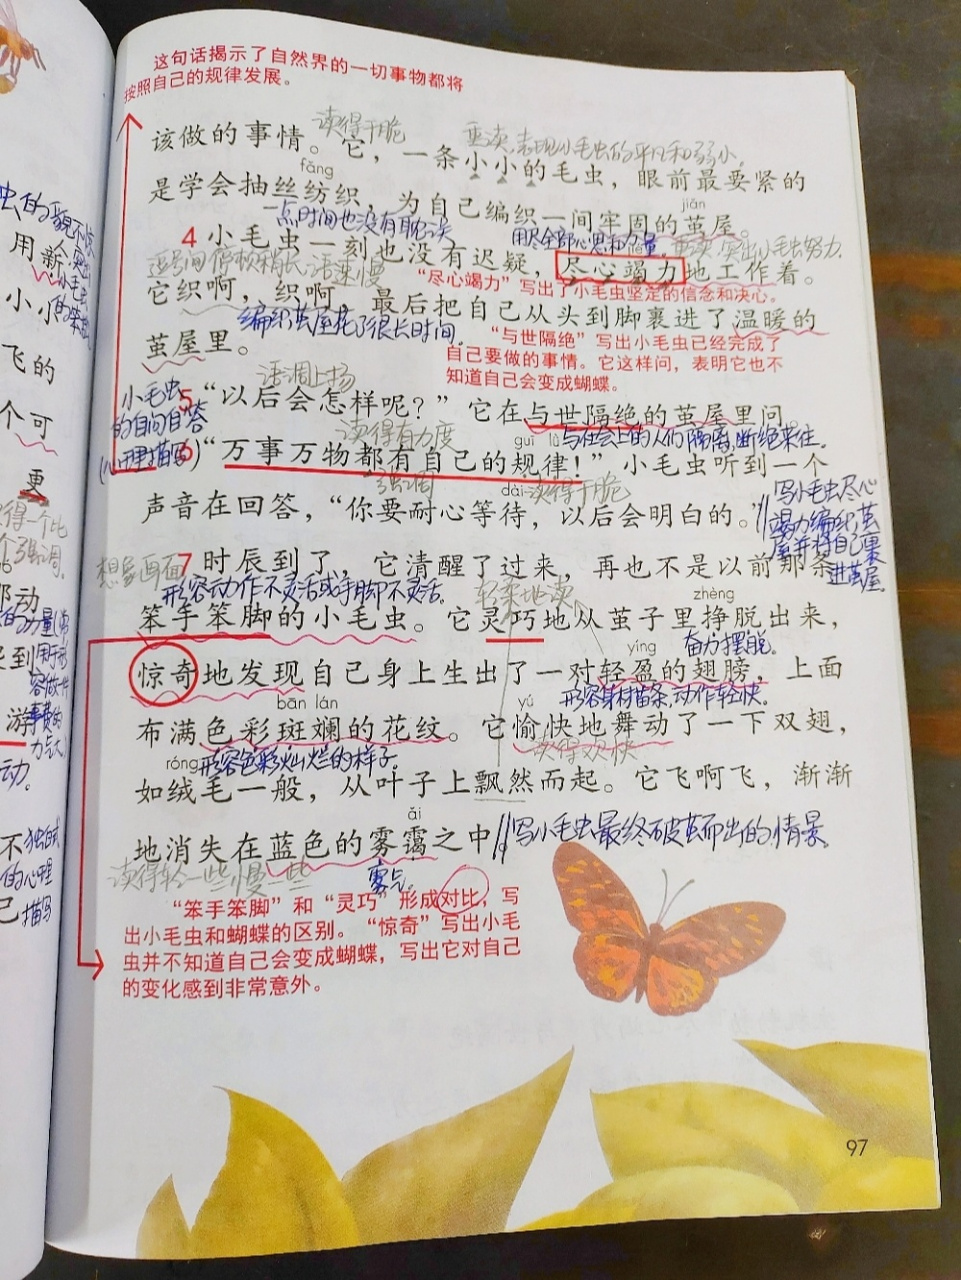 这句话揭示了自然界的一切事物都将
按照自己的规律发展。
读得干脆
重读,表现小毛虫的平凡和弱小。
该做的事情。它,一条小小的毛虫,眼前最要紧的
fǎng
是学会抽丝纺织,为自己编织一间牢固的茧屋。
jiǎn
一点时间也没有耽误
用尽全部心思和力量。
重读,突出小毛虫努力.
4 小毛虫一刻也没有迟疑,尽心竭力地工作着。
逗号间停顿稍长,语速慢
“尽心竭力”写出了小毛虫坚定的信念和决心。
它织啊,织啊,最后把自己从头到脚裹进了温暖的
编织茧屋花了很长时间.
茧屋里。
“与世隔绝”写出小毛虫已经完成了
自己要做的事情。它这样问,表明它也不
知道自己会变成蝴蝶。
语调上扬
小毛虫
的自问自答
(心理描写)
5 “以后会怎样呢?”它在与世隔绝的茧屋里问。
读得有力度
guī lǜ
与社会上的人们隔离,断绝来往.
6 “万事万物都有自己的规律!”小毛虫听到一个
强调
dài
读得干脆
声音在回答,“你要耐心等待,以后会明白的。”
写小毛虫尽心
竭力编织茧
屋并将自己裹
进茧屋.
想象画面
7 时辰到了,它清醒了过来,再也不是以前那条
形容动作不灵活或手脚不灵活.
轻柔地读
zhèng
笨手笨脚的小毛虫。它灵巧地从茧子里挣脱出来,
yíng
奋力摆脱.
惊奇地发现自己身上生出了一对轻盈的翅膀,上面
bān lán
yú
形容身材苗条,动作轻快.
布满色彩斑斓的花纹。它愉快地舞动了一下双翅,
róng
形容色彩灿烂的样子.
读得欢快
如绒毛一般,从叶子上飘然而起。它飞啊飞,渐渐
ǎi
地消失在蓝色的雾霭之中。
写小毛虫最终破茧而出的情景.
读得轻一些,慢一些
雾气.
“笨手笨脚”和“灵巧”形成对比,写
出小毛虫和蝴蝶的区别。“惊奇”写出小毛
虫并不知道自己会变成蝴蝶,写出它对自己
的变化感到非常意外。
97
用新
小小
飞的
个可
游
动.
不
独白式
的心理
描写